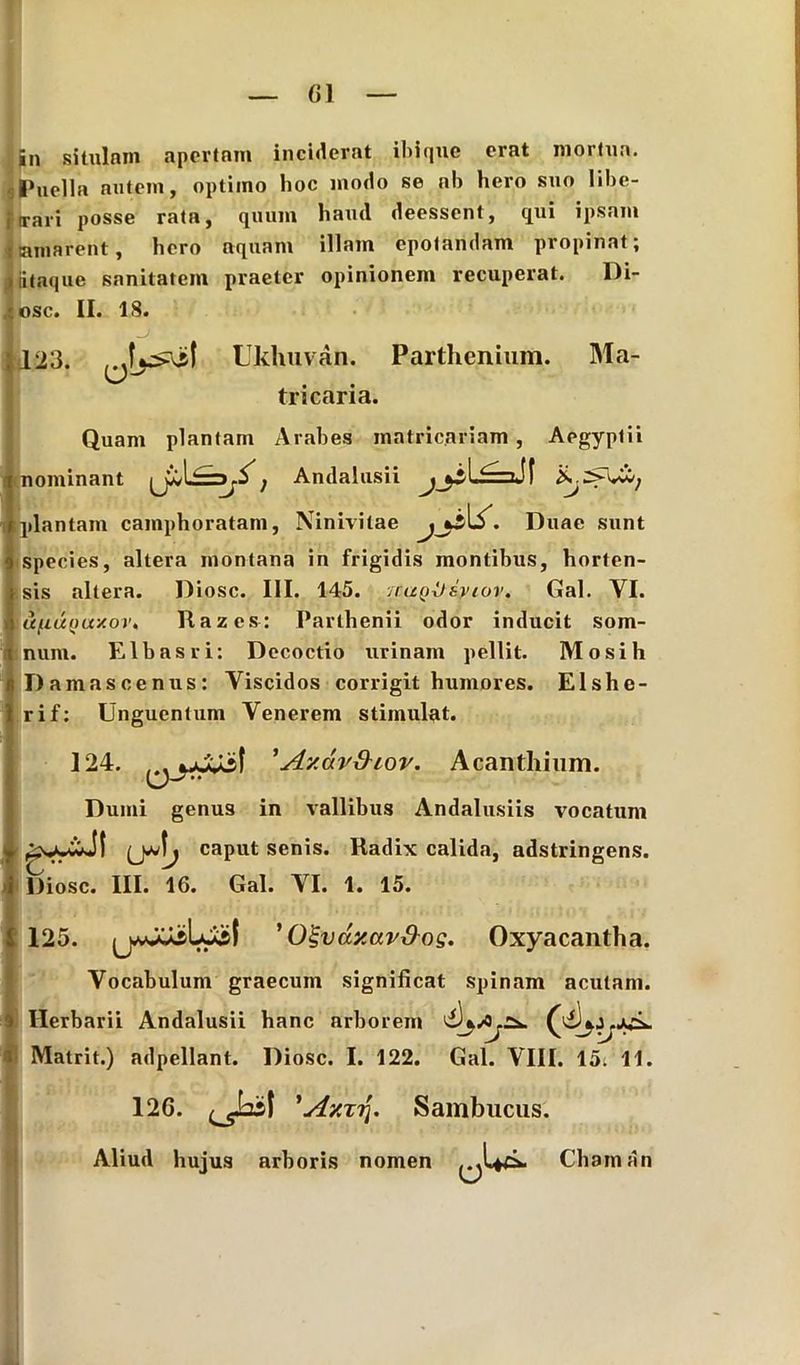 — 61 —
in situlam apertam inciderat ibique erat mortua.
Puella autem, optimo hoc modo se ab hero suo libe-
rari posse rata, quum haud deessent, qui ipsam
amarent, hero aquam illam epotandam propinat;
itaque sanitatem praeter opinionem recuperat. Di-
osc. II. 18.
123. اقحوان Ukhuván. Parthenium. Ma-
tricaria.
Quam plantam Arabes matricariam, Aegyptii
nominant كركاش, Andalusii شجرة الكافور,
plantam camphoratam, Ninivitae كافور. Duae sunt
species, altera montana in frigidis montibus, horten-
sis altera. Diosc. III. 145. παρθένιον. Gal. VI.
ἀμάρακον. Razes: Parthenii odor inducit som-
num. Elbasri: Decoctio urinam pellit. Mosih
Damascenus: Viscidos corrigit humores. Elshe-
rif: Unguentum Venerem stimulat.
124. اقنثيون Ἀκάνθιον. Acanthium.
Dumi genus in vallibus Andalusiis vocatum
راس الشيخ caput senis. Radix calida, adstringens.
Diosc. III. 16. Gal. VI. 1. 15.
125. Ὀξυάκανθος. Oxyacantha.
Vocabulum graecum significat spinam acutam.
Herbarii Andalusii hanc arborem
Matrit.) adpellant. Diosc. I. 122. Gal. VIII. 15. 11.
126. اقطى Ἀκτή. Sambucus.
Aliud hujus arboris nomen خمان Chamán